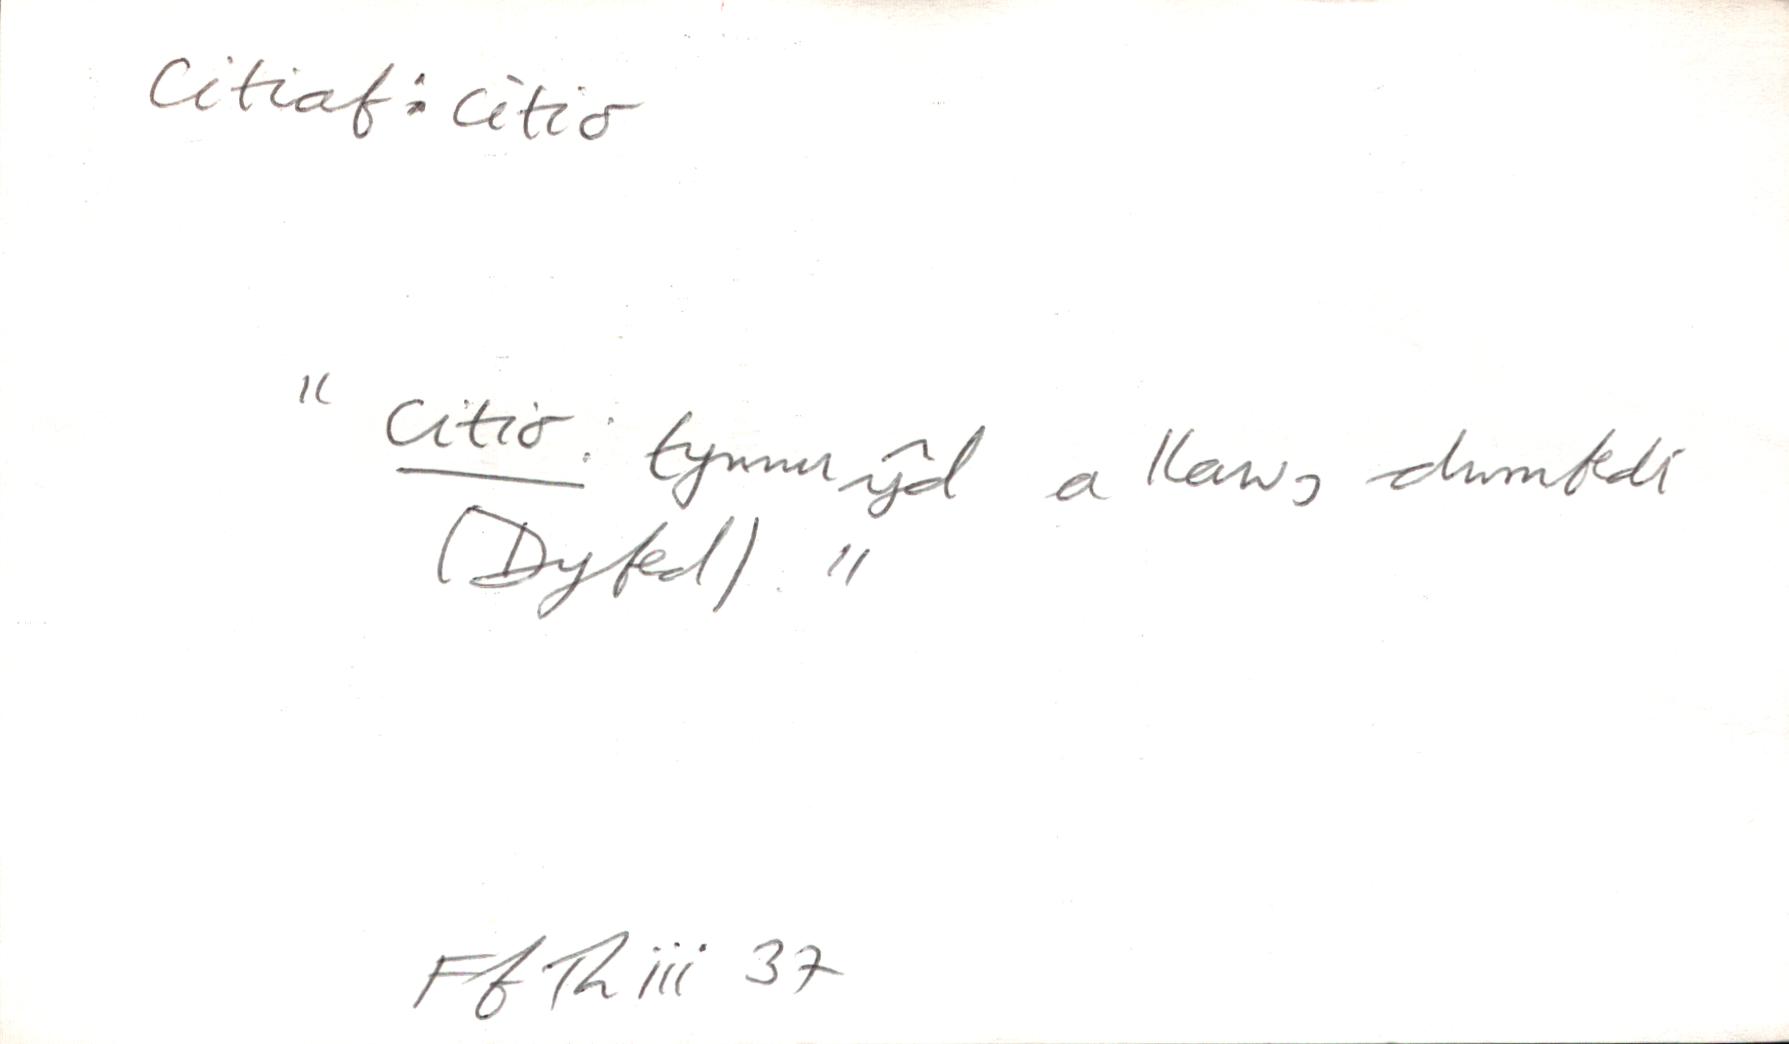 Citiaf: citio
" Citio: tynnu ŷd a llaw, dwrnfedi
(Dyfed). "
Ff Th iii 37